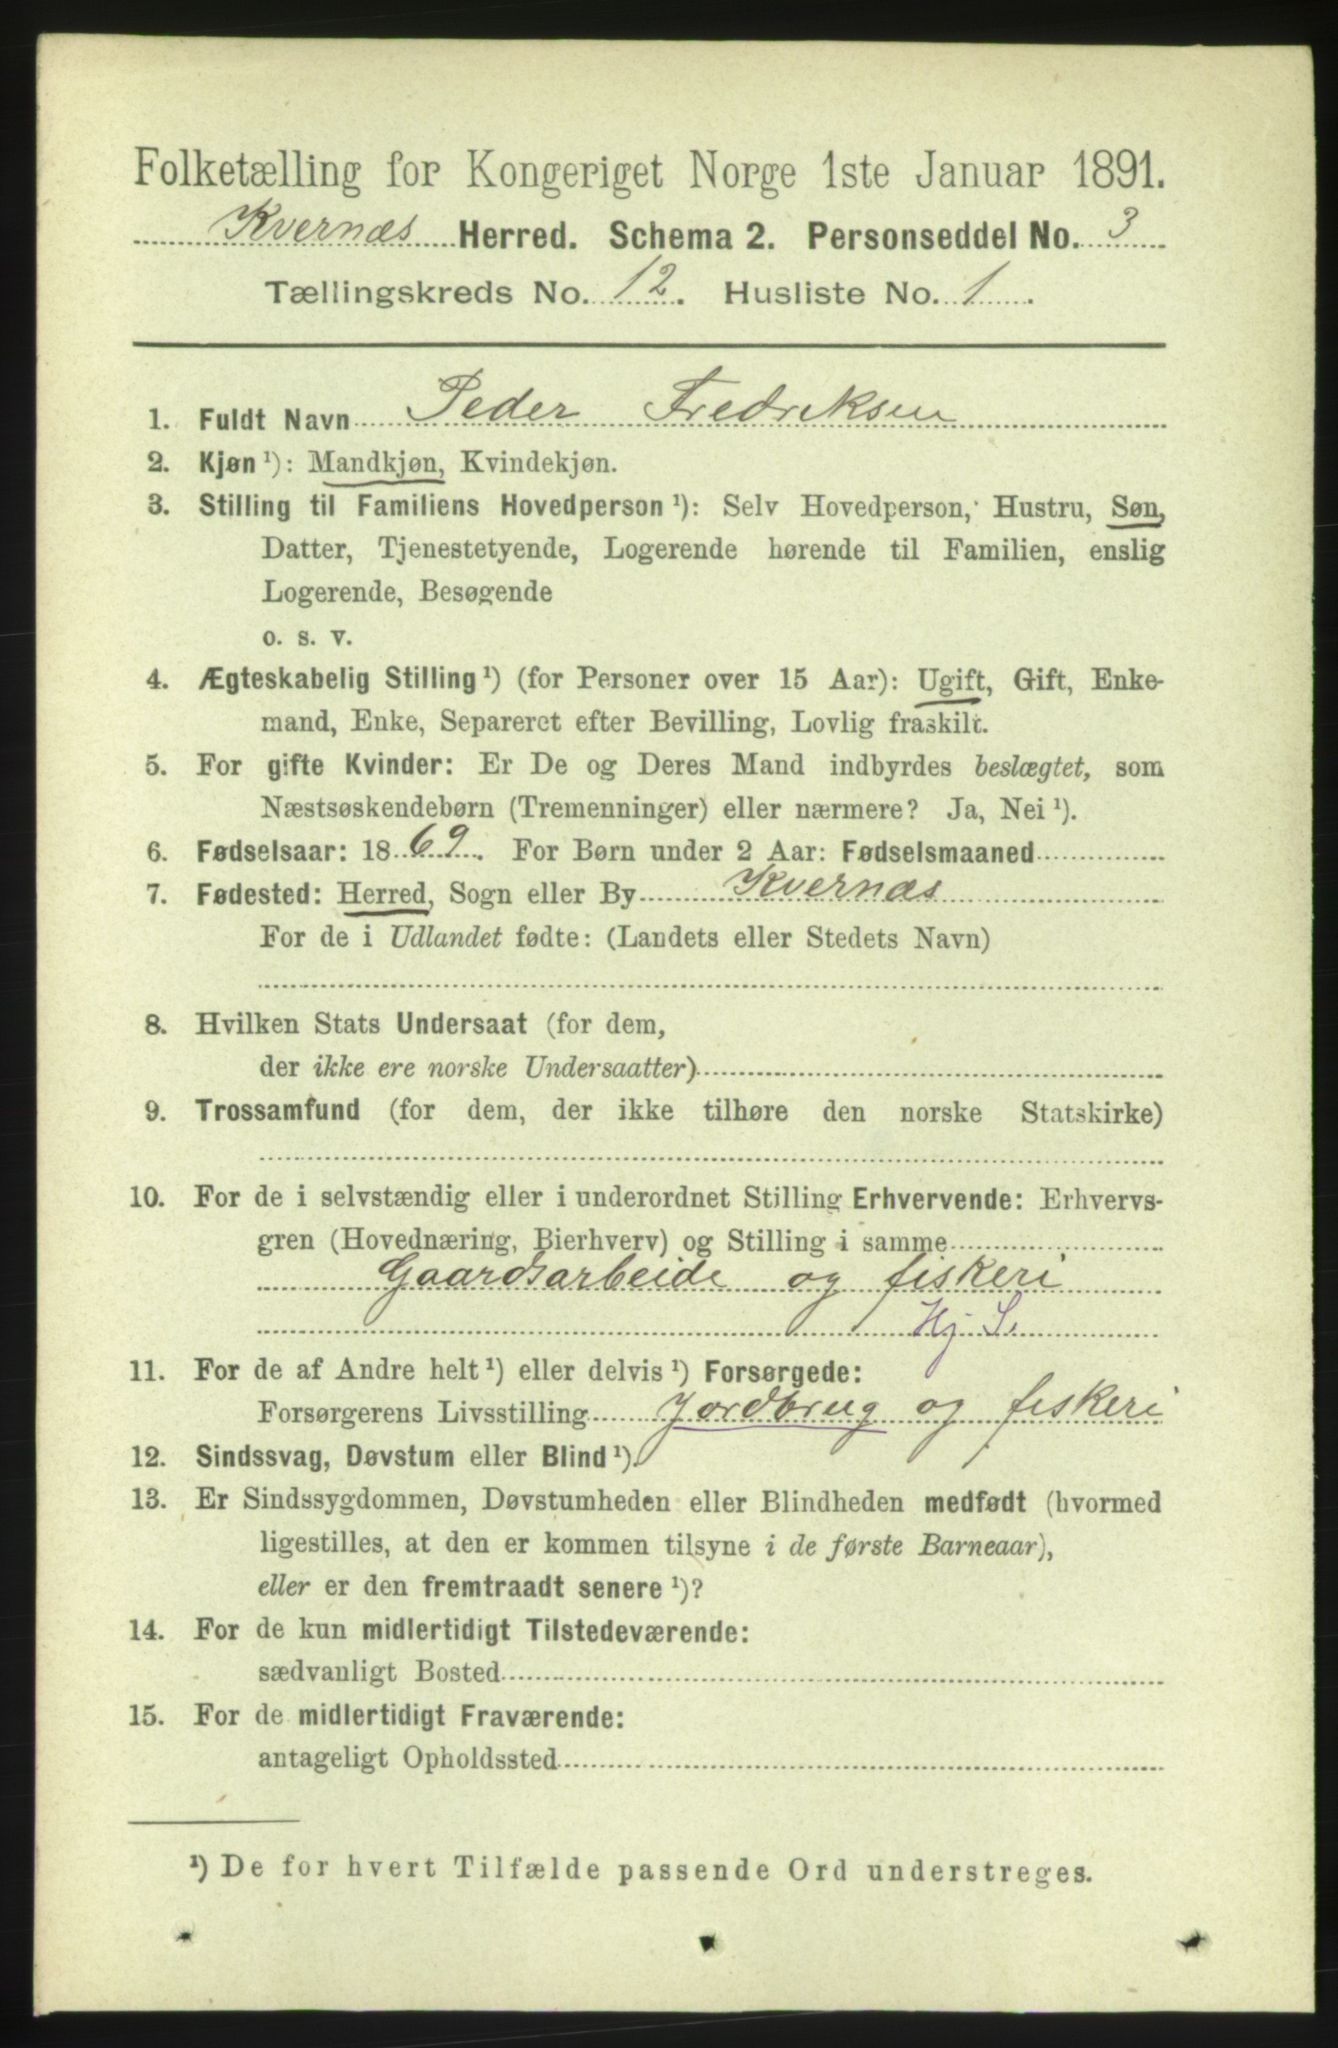 Folketælling for Kongeriget Norge 1ste Januar 1891.
Kvernæs Herred. Schema 2. Personseddel No. 3
Tællingskreds No. 12. Husliste No. 1.
1. Fuldt Navn Peder Fredriksen
2. Kjøn ¹): Mandkjøn, Kvindekjøn.
3. Stilling til Familiens Hovedperson ¹): Selv Hovedperson, Hustru, Søn,
Datter, Tjenestetyende, Logerende hørende til Familien, enslig
Logerende, Besøgende
o. s. v.
4. Ægteskabelig Stilling ¹) (for Personer over 15 Aar): Ugift, Gift, Enke-
mand, Enke, Separeret efter Bevilling, Lovlig fraskilt.
5. For gifte Kvinder: Er De og Deres Mand indbyrdes beslægtet, som
Næstsøskendebørn (Tremenninger) eller nærmere? Ja, Nei ¹).
6. Fødselsaar: 1869. For Børn under 2 Aar: Fødselsmaaned
7. Fødested: Herred, Sogn eller By Kvernæs
For de i Udlandet fødte: (Landets eller Stedets Navn)
8. Hvilken Stats Undersaat (for dem,
der ikke ere norske Undersaatter)
9. Trossamfund (for dem, der ikke tilhøre den norske Statskirke)
10. For de i selvstændig eller i underordnet Stilling Erhvervende: Erhvervs-
gren (Hovednæring, Bierhverv) og Stilling i samme
Gaardsarbeide og fiskeri
Hj. S.
11. For de af Andre helt ¹) eller delvis ¹) Forsørgede:
Forsørgerens Livsstilling Jordbrug og fiskeri
12. Sindssvag, Døvstum eller Blind ¹).
13. Er Sindssygdommen, Døvstumheden eller Blindheden medfødt (hvormed
ligestilles, at den er kommen tilsyne i de første Barneaar),
eller er den fremtraadt senere ¹)?
14. For de kun midlertidigt Tilstedeværende:
sædvanligt Bosted
15. For de midlertidigt Fraværende:
antageligt Opholdssted
¹) De for hvert Tilfælde passende Ord understreges.